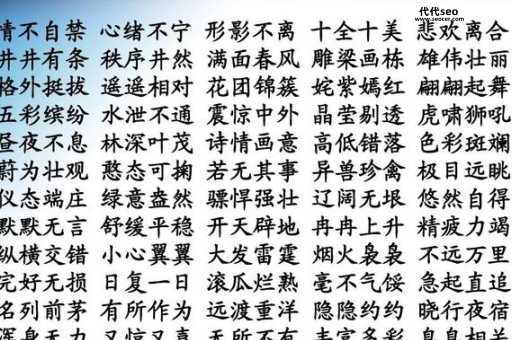 代代seo
www.ocero.com
情不自禁 心绪不宁 形影不离 十全十美 悲欢离合
井井有条 秩序井然 满面春风 雕梁画栋 雄伟壮丽
格外挺拔 遥遥相对 花团锦簇 姹紫嫣红 翩翩起舞
五彩缤纷 水泄不通 震惊中外 晶莹剔透 虎啸狮吼
昼夜不息 林深叶茂 诗情画意 高低错落 色彩斑斓
蔚为壮观 憨态可掬 若无其事 异兽珍禽 极目远眺
仪态端庄 绿意盎然 骠悍强壮 辽阔无垠 悠然自得
默默无言 舒缓平稳 开天辟地 冉冉上升 精疲力竭
纵横交错 小心翼翼 大发雷霆 烟火袅袅 不远万里
完好无损 日复一日 滚瓜烂熟 毫不气馁 急起直追
名列前茅 有所作为 远渡重洋 隐隐约约 晓行夜宿
浑身无力 又惊又喜 无所不有 丰富多彩 息息相关